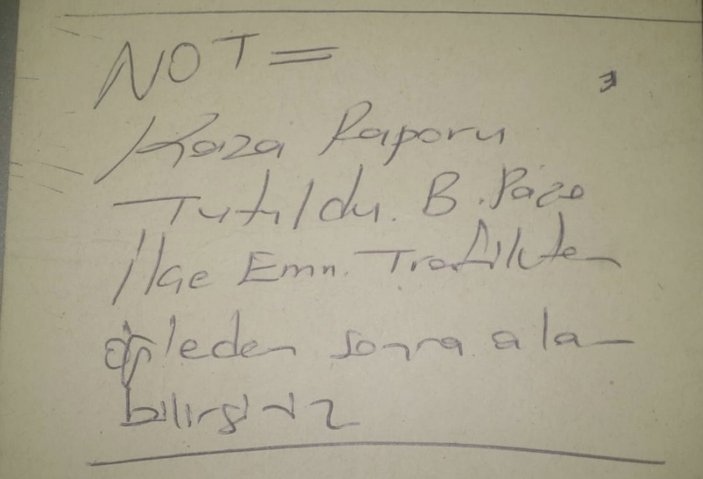 NOT=
Kaza Raporu
Tutuldu. B. Paza
İlçe Emn. Trafikten
öğleden sonra ala
bilirsiniz